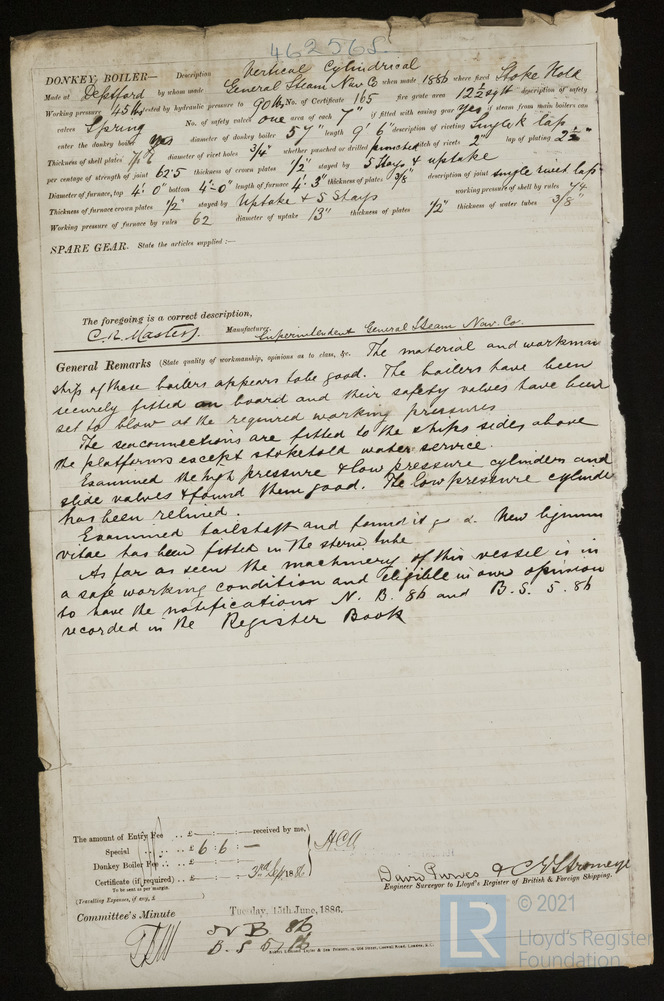 462568
DONKEY BOILER— Description Vertical Cylindrical
Made at Deptford by whom made General Steam Nav. Co when made 1886 where fixed Stoke Hold
Working pressure 45 lbs tested by hydraulic pressure to 90 lbs No. of Certificate 165 fire grate area 12½ sq ft description of safety
valves Spring No. of safety valves one area of each 7" if fitted with easing gear yes if steam from main boilers can
enter the donkey boiler yes diameter of donkey boiler 57" length 9' 6" description of riveting Single lap
Thickness of shell plates 7/16 diameter of rivet holes 3/4" whether punched or drilled punched pitch of rivets 2" lap of plating 2½"
per centage of strength of joint 62.5 thickness of crown plates 1/2" stayed by 5 Stays & uptake
Diameter of furnace, top 4' 0" bottom 4'-0" length of furnace 4' 3" thickness of plates 3/8" description of joint single rivet lap
Thickness of furnace crown plates 1/2" stayed by Uptake & 5 Stays working pressure of shell by rules 74
Working pressure of furnace by rules 62 diameter of uptake 13" thickness of plates 1/2" thickness of water tubes 3/8"
SPARE GEAR. State the articles supplied:—
The foregoing is a correct description,
C. R. Masters. Manufacturer. Superintendent General Steam Nav. Co.
General Remarks (State quality of workmanship, opinions as to class, &c. The material and workman
ship of these boilers appears to be good. The boilers have been
securely fitted on board and their safety valves have been
set to blow at the required working pressures
The seaconnections are fitted to the ships sides above
the platforms except stokehold water service.
Examined the high pressure & low pressure cylinders and
slide valves & found them good. The low pressure cylinder
has been relined.
Examined tailshaft and found it good. New lignum
vitae has been fitted in the stern tube
As far as seen the machinery of this vessel is in
a safe working condition and eligible in our opinion
to have the notifications N. B. 86 and B. S. 5. 86
recorded in the Register Book
The amount of Entry Fee .. £ — : — : — received by me,
Special .. £ 6 : 6 : —
Donkey Boiler Fee .. £ — : — : —
Certificate (if required) .. £ — : — : — 3rd Sep 1886
To be sent as per margin.
(Travelling Expenses, if any, £ )
David Purves & C E Stromeyer
Engineer Surveyor to Lloyd's Register of British & Foreign Shipping.
Committee's Minute Tuesday, 15th June, 1886.
N B 86
B. S 5/86
LR © 2021
Lloyd's Register
Foundation